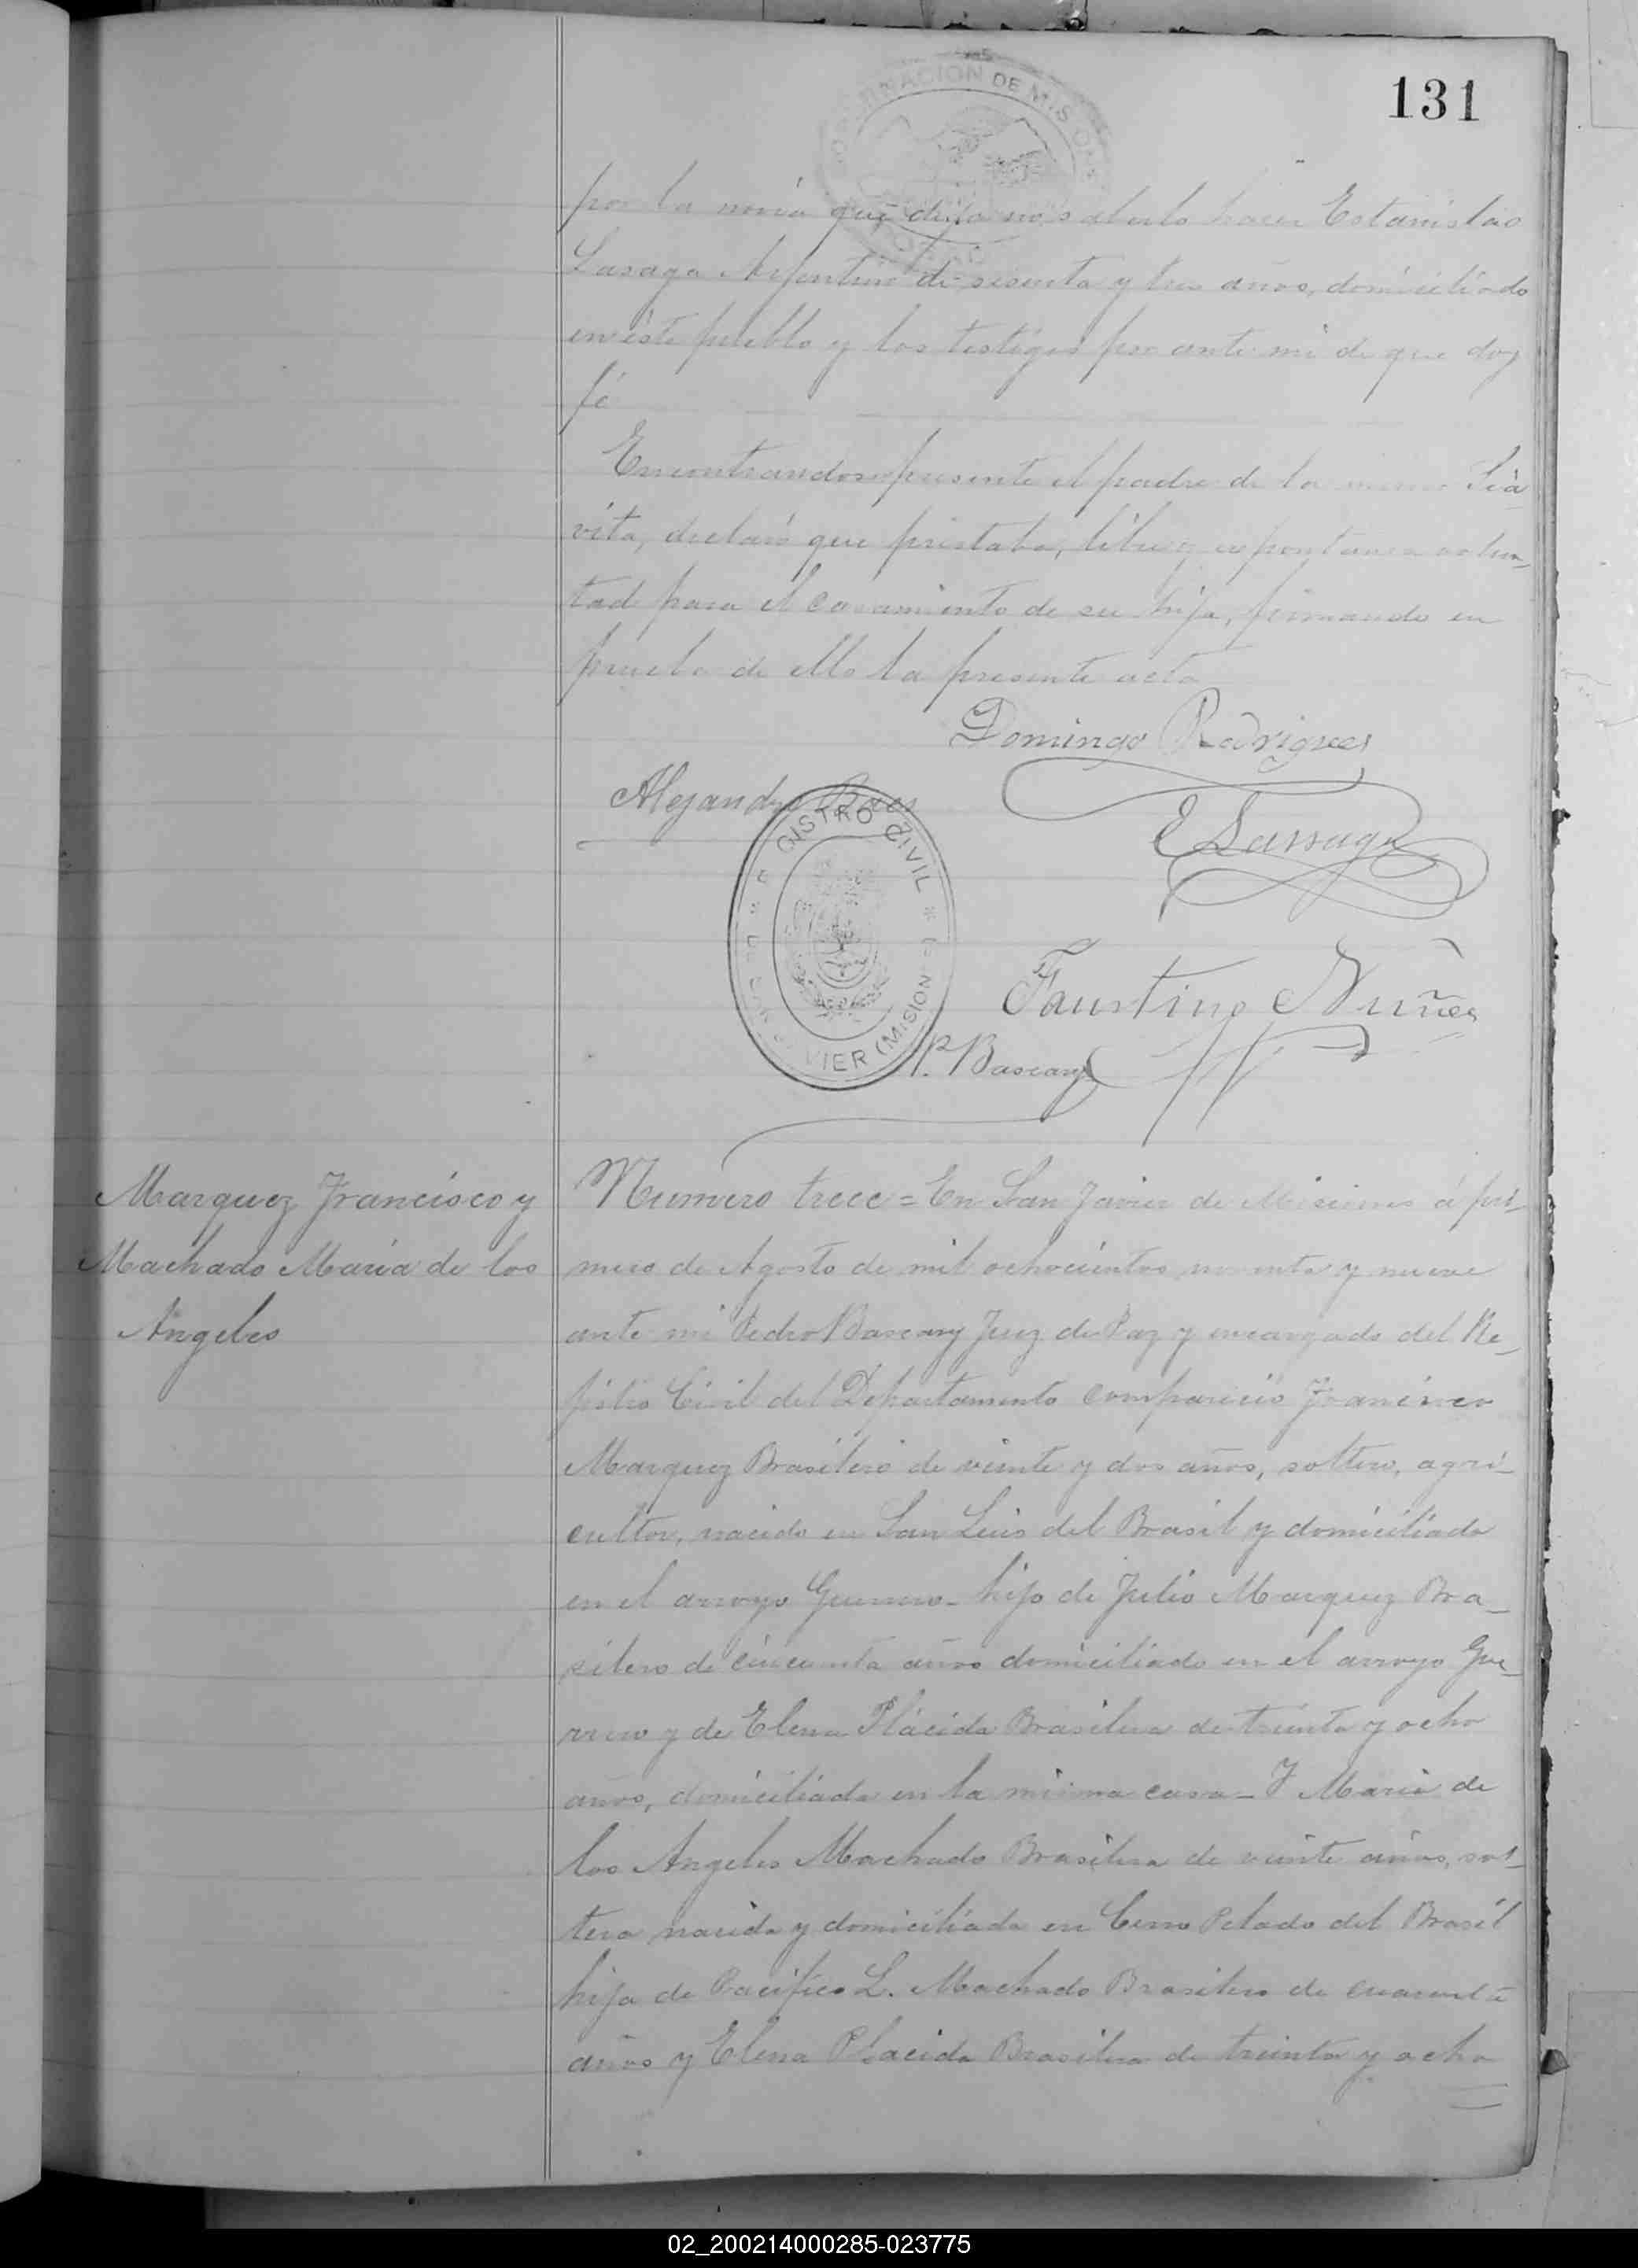 131
GOBERNACION DE MISIONES
por la novia que dijo no saberlo hacer Estanislao
Lasaga Argentino de sesenta y tres años, domiciliado
en este pueblo y los testigos por ante mi de que doy
fé
Encontrandose presente el padre de la menor
vita, declaró que prestaba, libre y espontanea volun_
tad para el casamiento de su hija, firmando en
prueba de ello la presente acta
Domingo Rodrigues
Alejandro
E Lassaga
REGISTRO CIVIL
VIER (MISIONES)
Faustino Nuñes
P. Bascary
Marquez Francisco y
Machado Maria de los
Angeles
Numero trece = En San Javier de Misiones á pri_
mero de Agosto de mil ochocientos noventa y nueve
ante mi Pedro Bascary Juez de Paz y encargado del Re_
jistro Civil del Departamento compareció Francisco
Marquez Brasilero de veinte y dos años, soltero, agri_
cultor, nacido en San Luis del Brasil y domiciliado
en el arroyo Guerrero_ hijo de Julio Marquez Bra_
silero de cincuenta años domiciliado en el arroyo Gue_
rrero y de Elena Plácida Brasilera de treinta y ocho
años, domiciliada en la misma casa_ Y Maria de
los Angeles Machado Brasilera de veinte años, sol_
tera nacida y domiciliada en Cerro Pelado del Brasil
hija de Pacifico L. Machado Brasilero de cuarenta
años y Elena Placida Brasilera de treinta y ocho
02_200214000285-023775